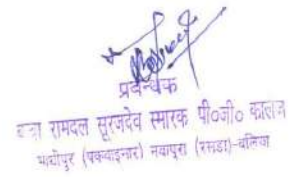 प्रबन्धक
बाबा रामदल सूरजदेव स्मारक पी०जी० कालेज
(पकवाइनार) नवापुरा (रसड़ा)-बलिया